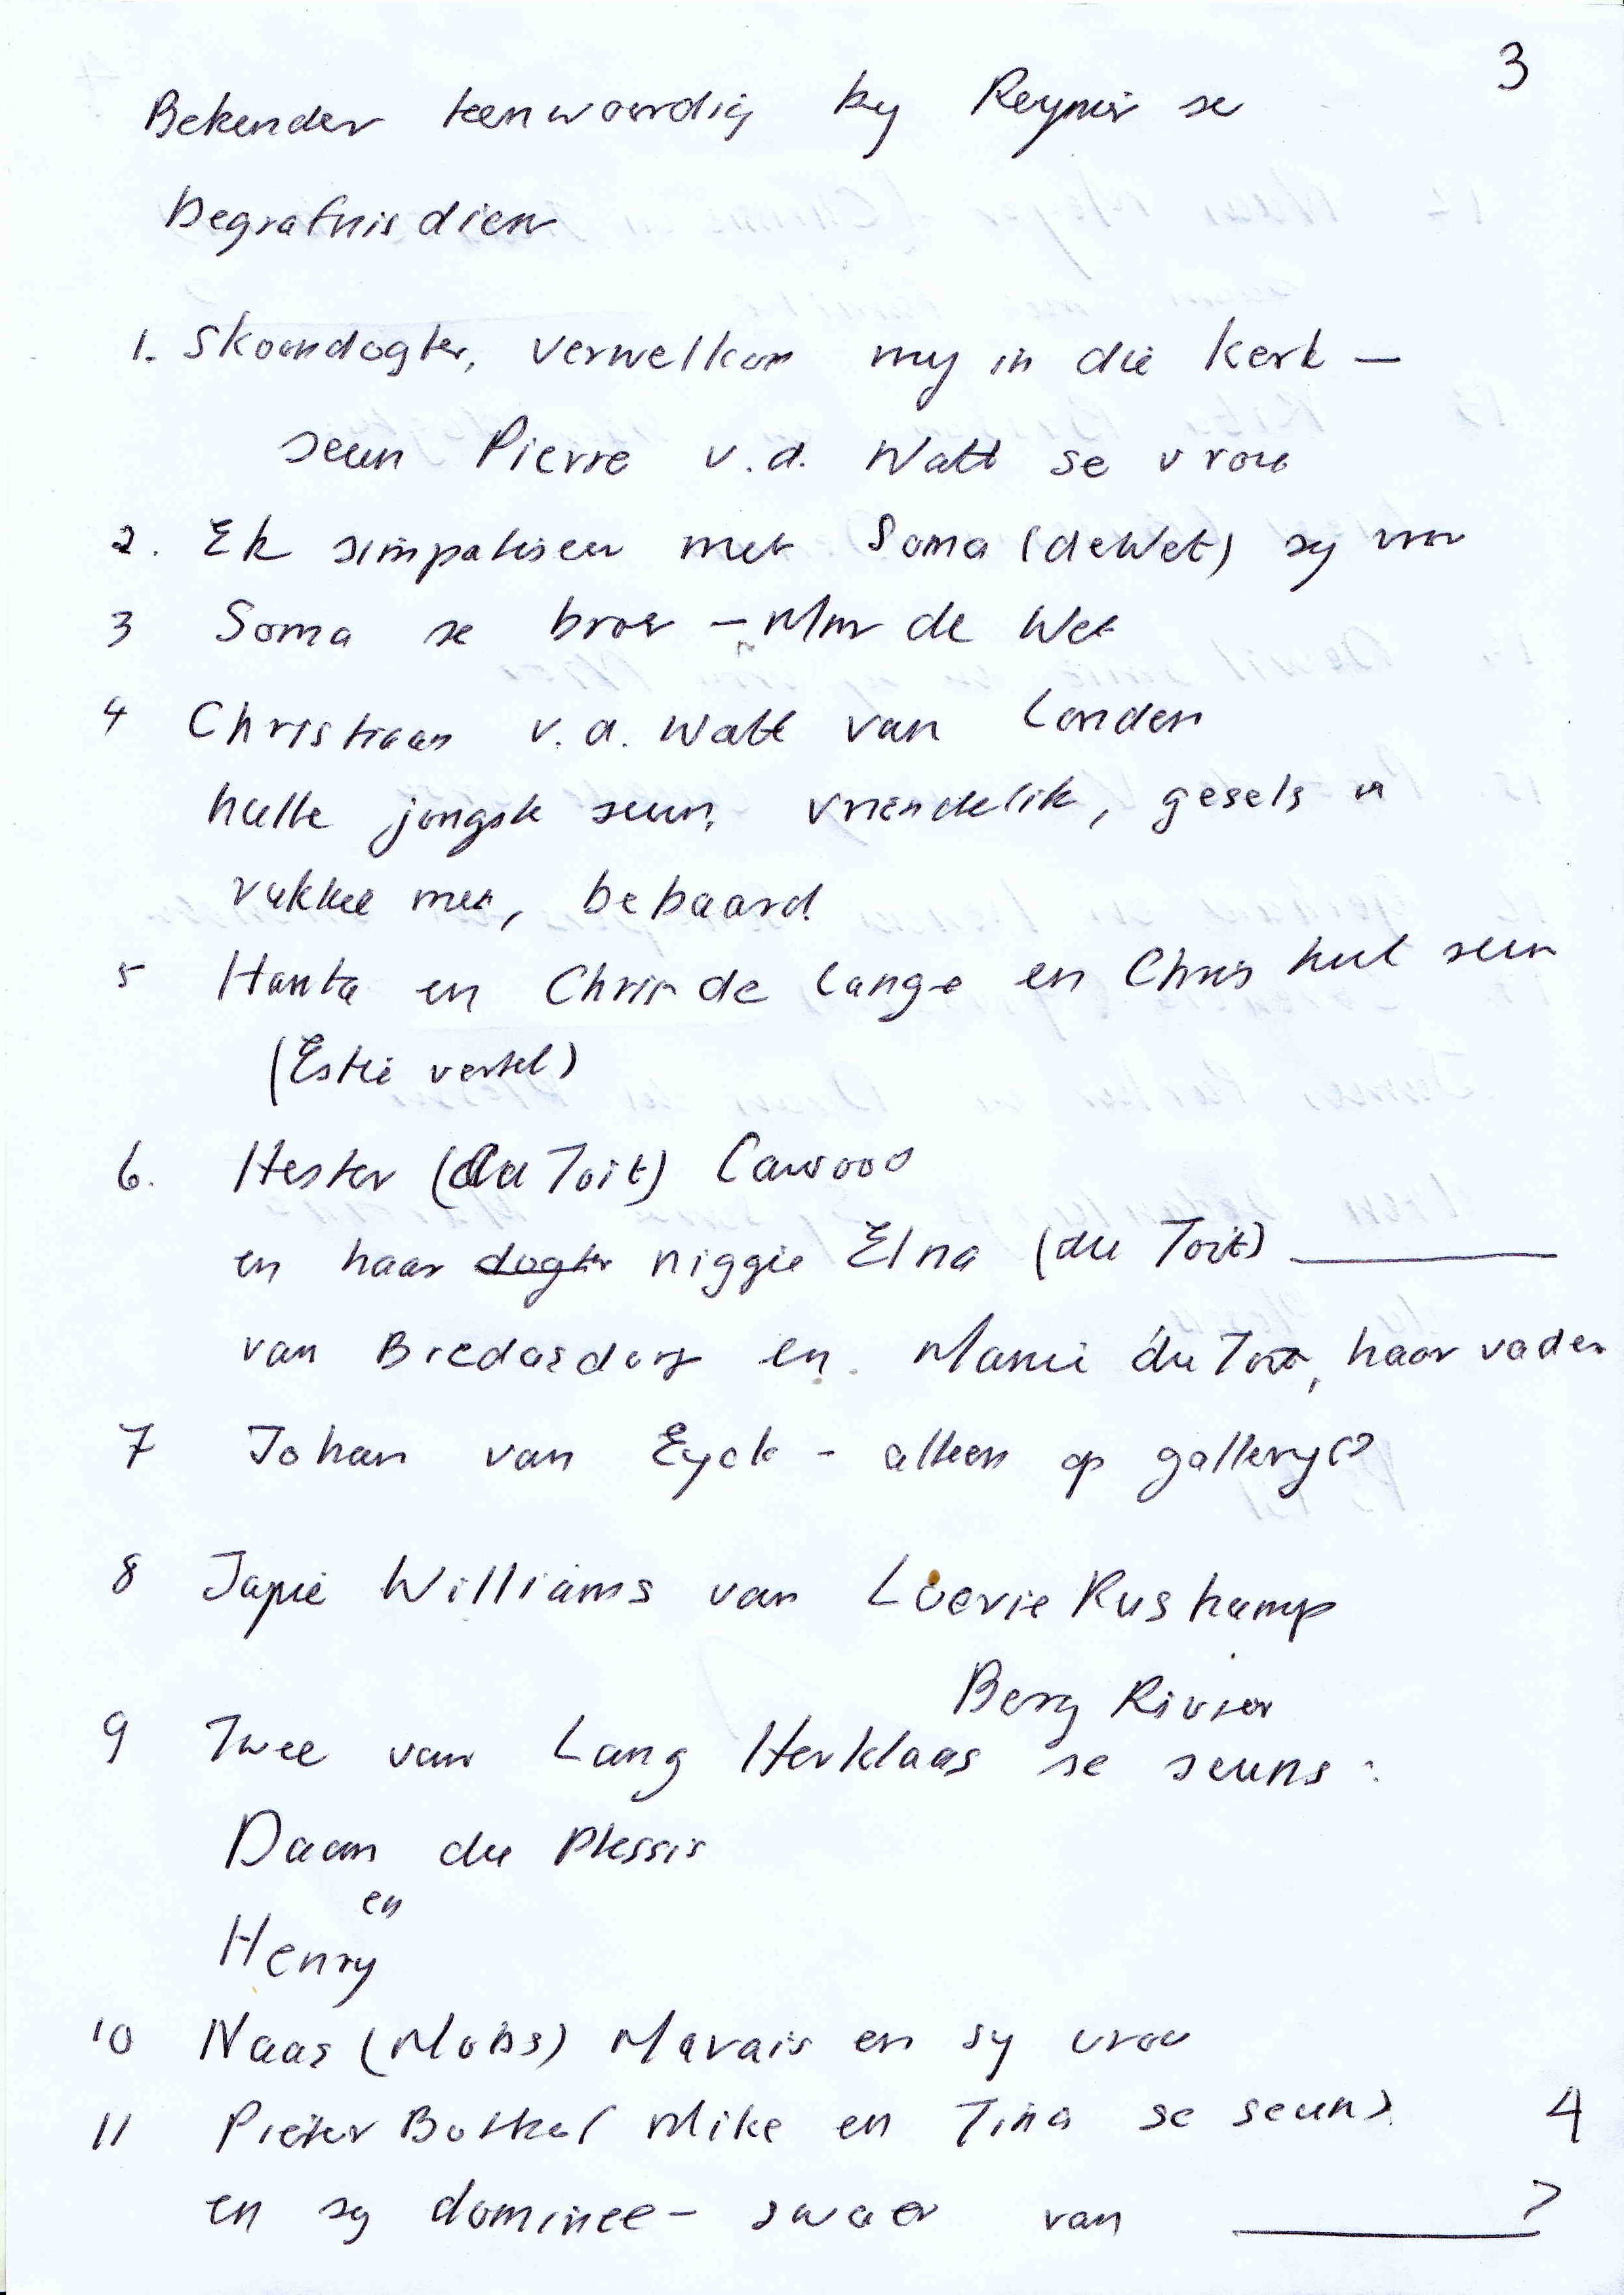 3
Bekendes teenwoordig by Reynier se
Begrafnisdiens
1. Skoondogter, verwelkom my in die kerk —
seun Pierre v.d. Watt se vrou
2. Ek simpatiseer met Soma (de Wet) sy vrou
3 Soma se broer — Mnr de Wet
4 Christiaan v.d. Watt van Londen
hulle jongste seun, vriendelik, gesels 'n
rukkie met, bebaard.
5 Hanta en Chris de Lange en Chris hul seun
(Estie vertel)
6. Hester (du Toit) Cawood
en haar dogter niggie Elna (du Toit) ______
van Bredasdorp en Manie du Toit, haar vader
7 Johan van Eyck - alleen op gallery(?)
8 Japie Williams van Loerie Ruskamp
Berg Rivier
9 Twee van Lang Herklaas se seuns:
Daan du Plessis
en
Henry
10 Naas (Mobs) Marais en sy vrou
11 Pieter Botha (Mike en Tina se seun)
4
en sy dominee - swaer van ______?